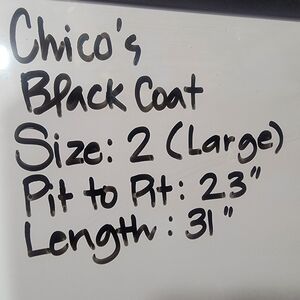 Chico's
Black Coat
Size: 2 (Large)
Pit to Pit: 23"
Length: 31"